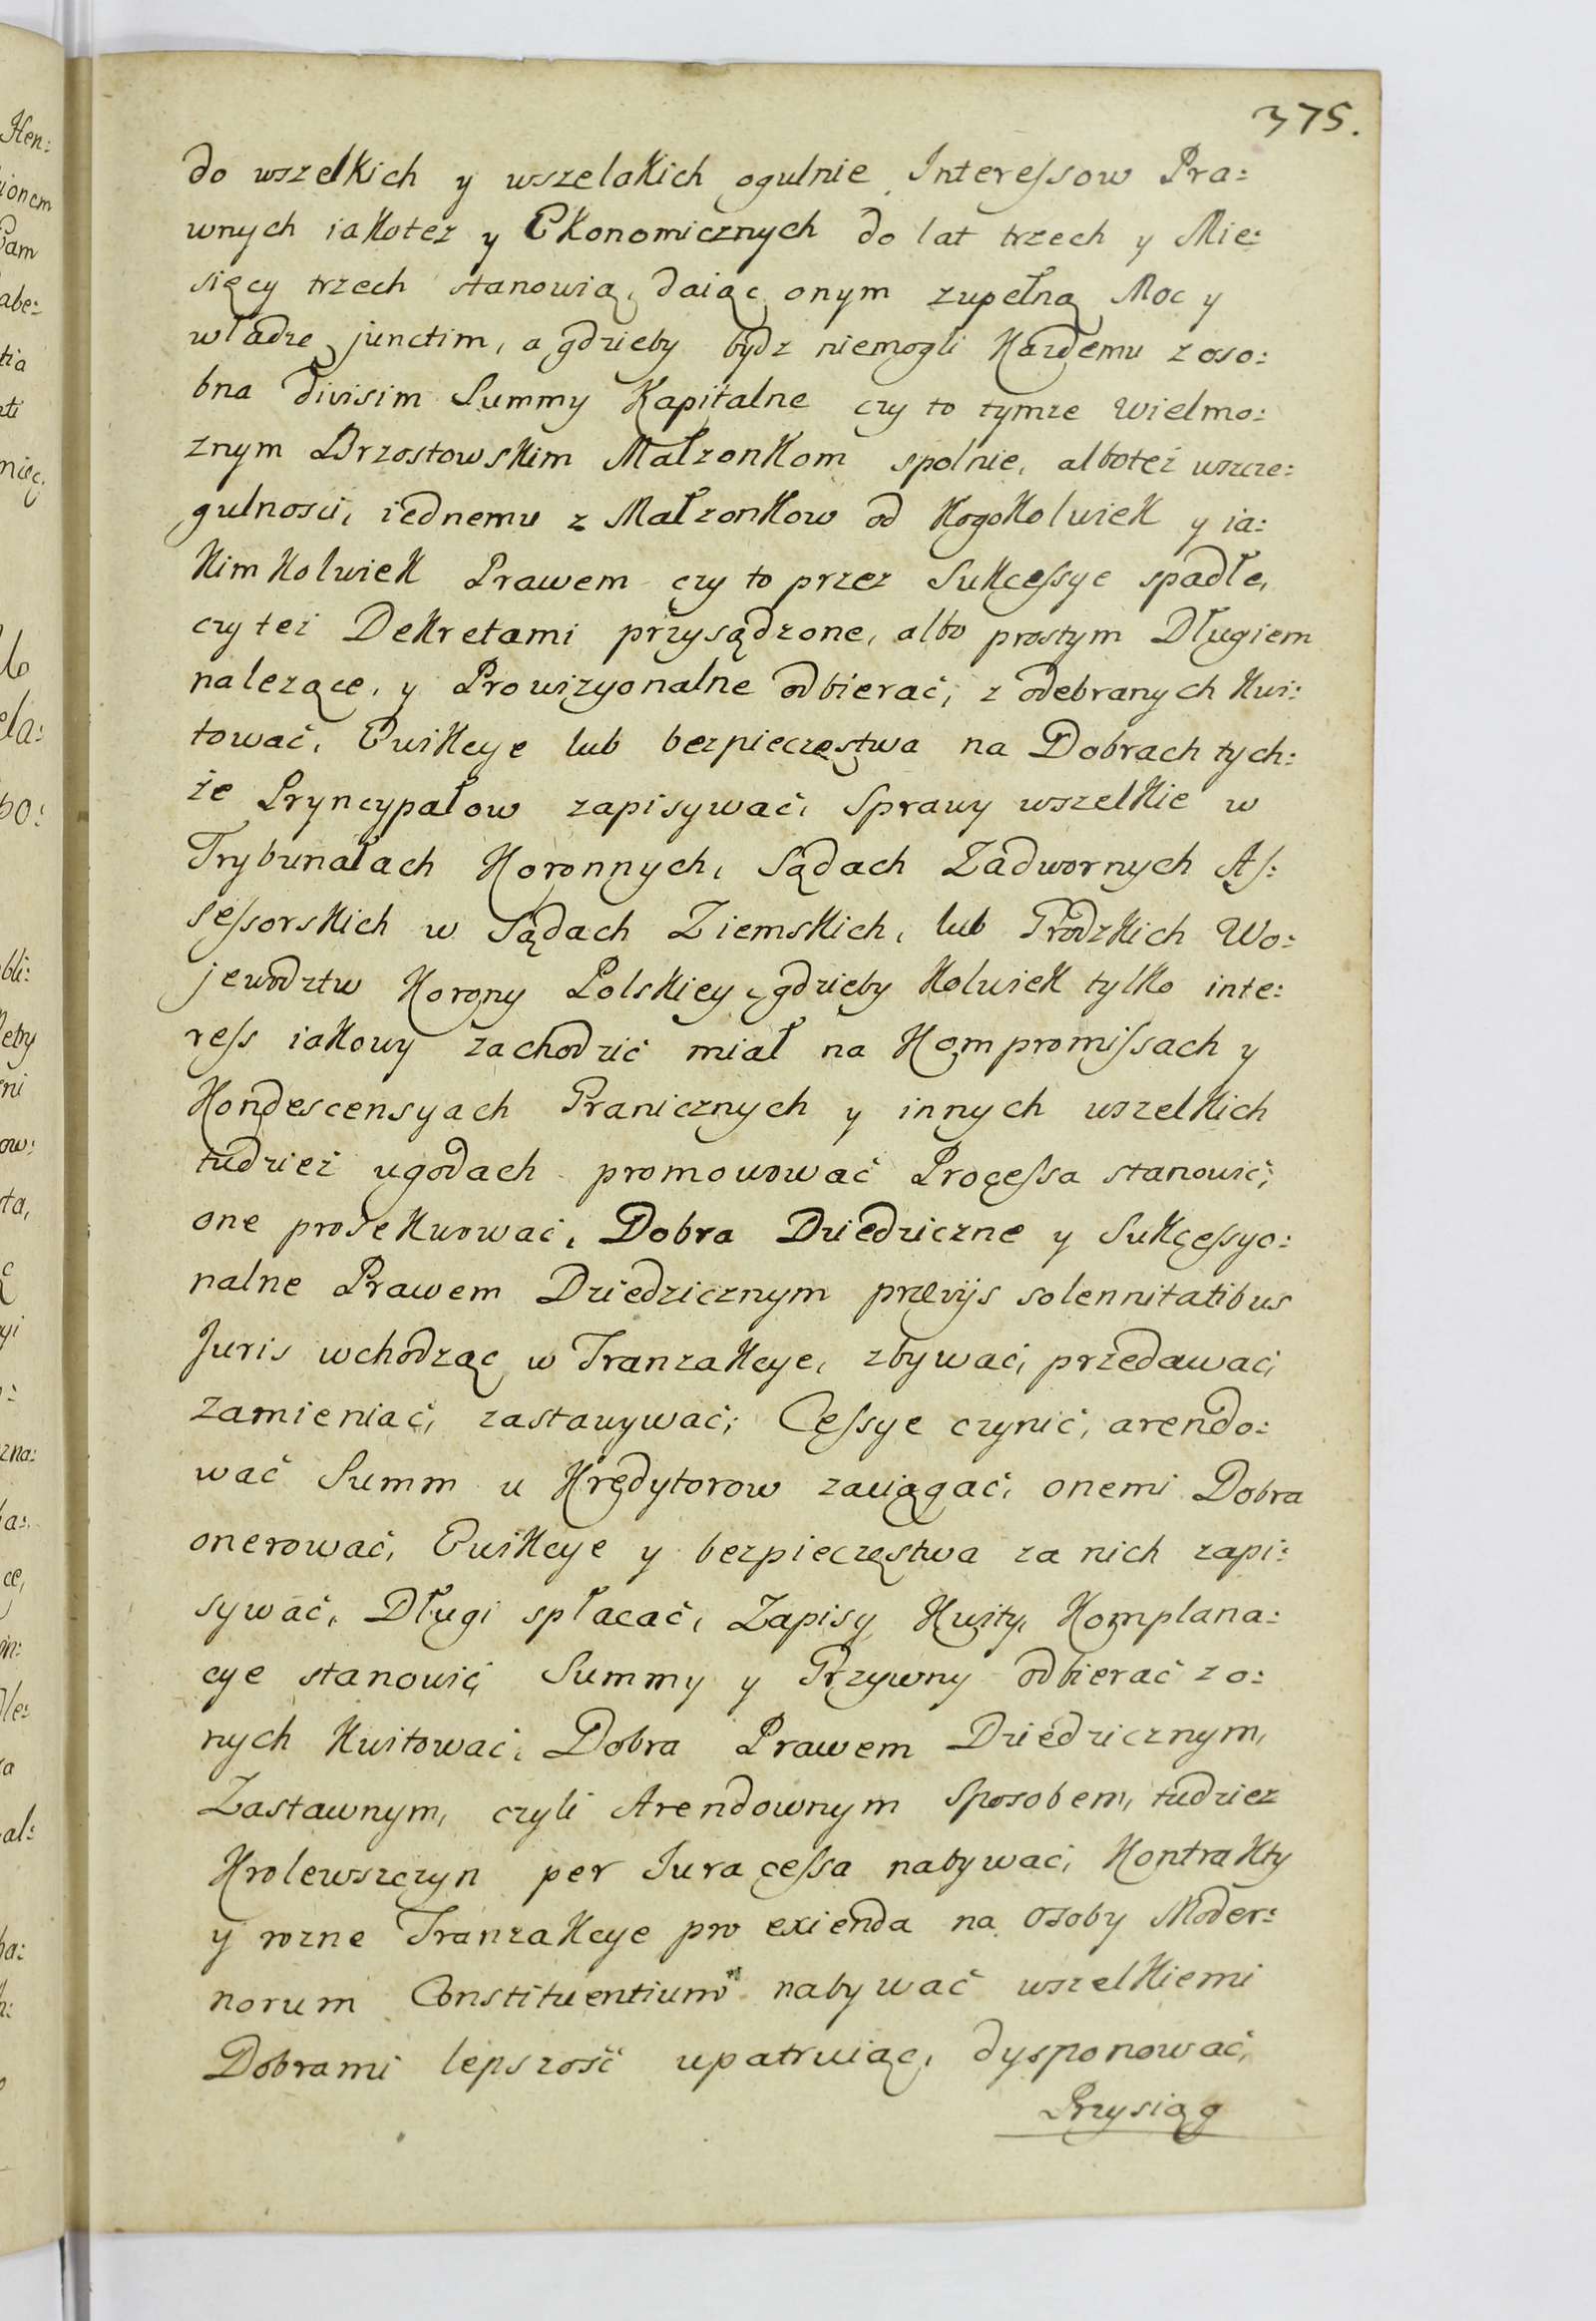 375.
do wszelkich y wszelakich ogulnie Interessow Pra:
wnych iakotez y Ekonomicznych do lat trzech y Mie:
sięcy trzech stanowią, daiąc onym zupełną Moc y
władzę junctim, a gdzieby bydz niemogli Kazdemu z oso:
bna divisim Summy Kapitalne czy to tymze Wielmo:
znym Brzostowskim Małzonkom spolnie, alboteż wszcze:
gulnosci, iednemu z Małzonkow od Kogokolwiek y ia:
Kimkolwiek Prawem czy to przez Sukcessye spadłe,
czy też Dekretami przysądzone, albo prostym Długiem
nalezące, y Prowizyonalne odbierać, z odebranych kwi:
tować, Ewikcye lub bezpieczęstwa na Dobrach tych:
że Pryncypałow zapisywać, Sprawy wszelkie w
Trybunałach Koronnych, Sądach Zadwornych As:
sessorskich w Sądach Ziemskich, lub Grodzkich Wo:
jewodztw Korony Polskiey, gdzieby kolwiek tylko inte:
ress iakowy zachodzić miał na Kompromissach y
Kondescensyach Granicznych y innych wszelkich
tudzież ugodach promowować Processa stanowić,
one prosekwować, Dobra Dziedziczne y Sukcessyo:
nalne Prawem Dziedzicznym prævijs solennitatibus
Juris wchodząc w Tranzakcye, zbywać, przedawać,
zamieniać, zastawywać, Cessye czynić, arendo:
wać Summ u Kredytorow zaciągać, onemi Dobra
onerować, Ewikcye y bezpieczęstwa za nich zapi:
sywać, Długi spłacać, Zapisy Kwity, Komplana:
cye stanowić, Summy y Grzywny odbierać z o:
nych Kwitować, Dobra Prawem Dziedzicznym,
Zastawnym, czyli Arendownym Sposobem, tudziez
Krolewszczyn per Jura cessa nabywać, Kontrakty
y rozne Tranzakcye pro exienda na osoby Moder:
norum Constituentium nabywać wszelkiemi
Dobrami lepszość upatruiąc, dysponować,
Przysiąg